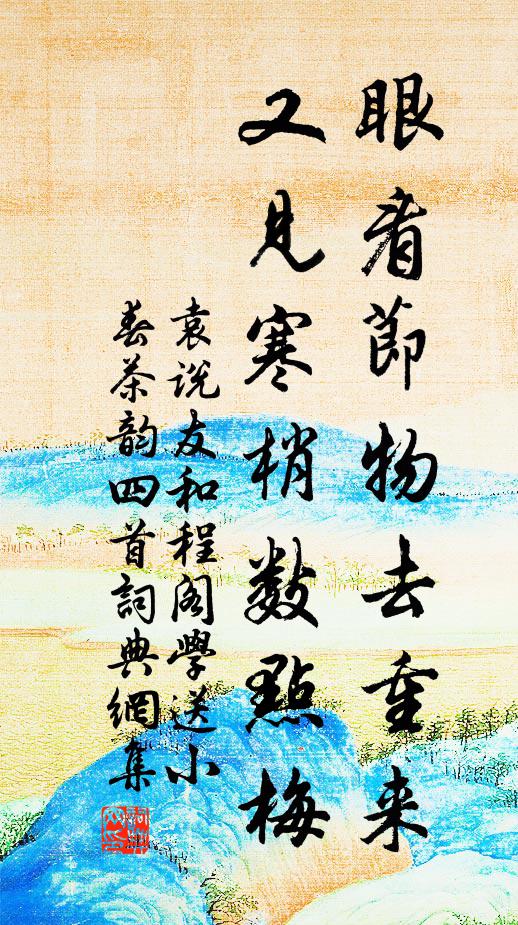 眼看節物去重来
又見寒梢數點梅
袁説友和程閣學送小
春茶韵四首詞典網集